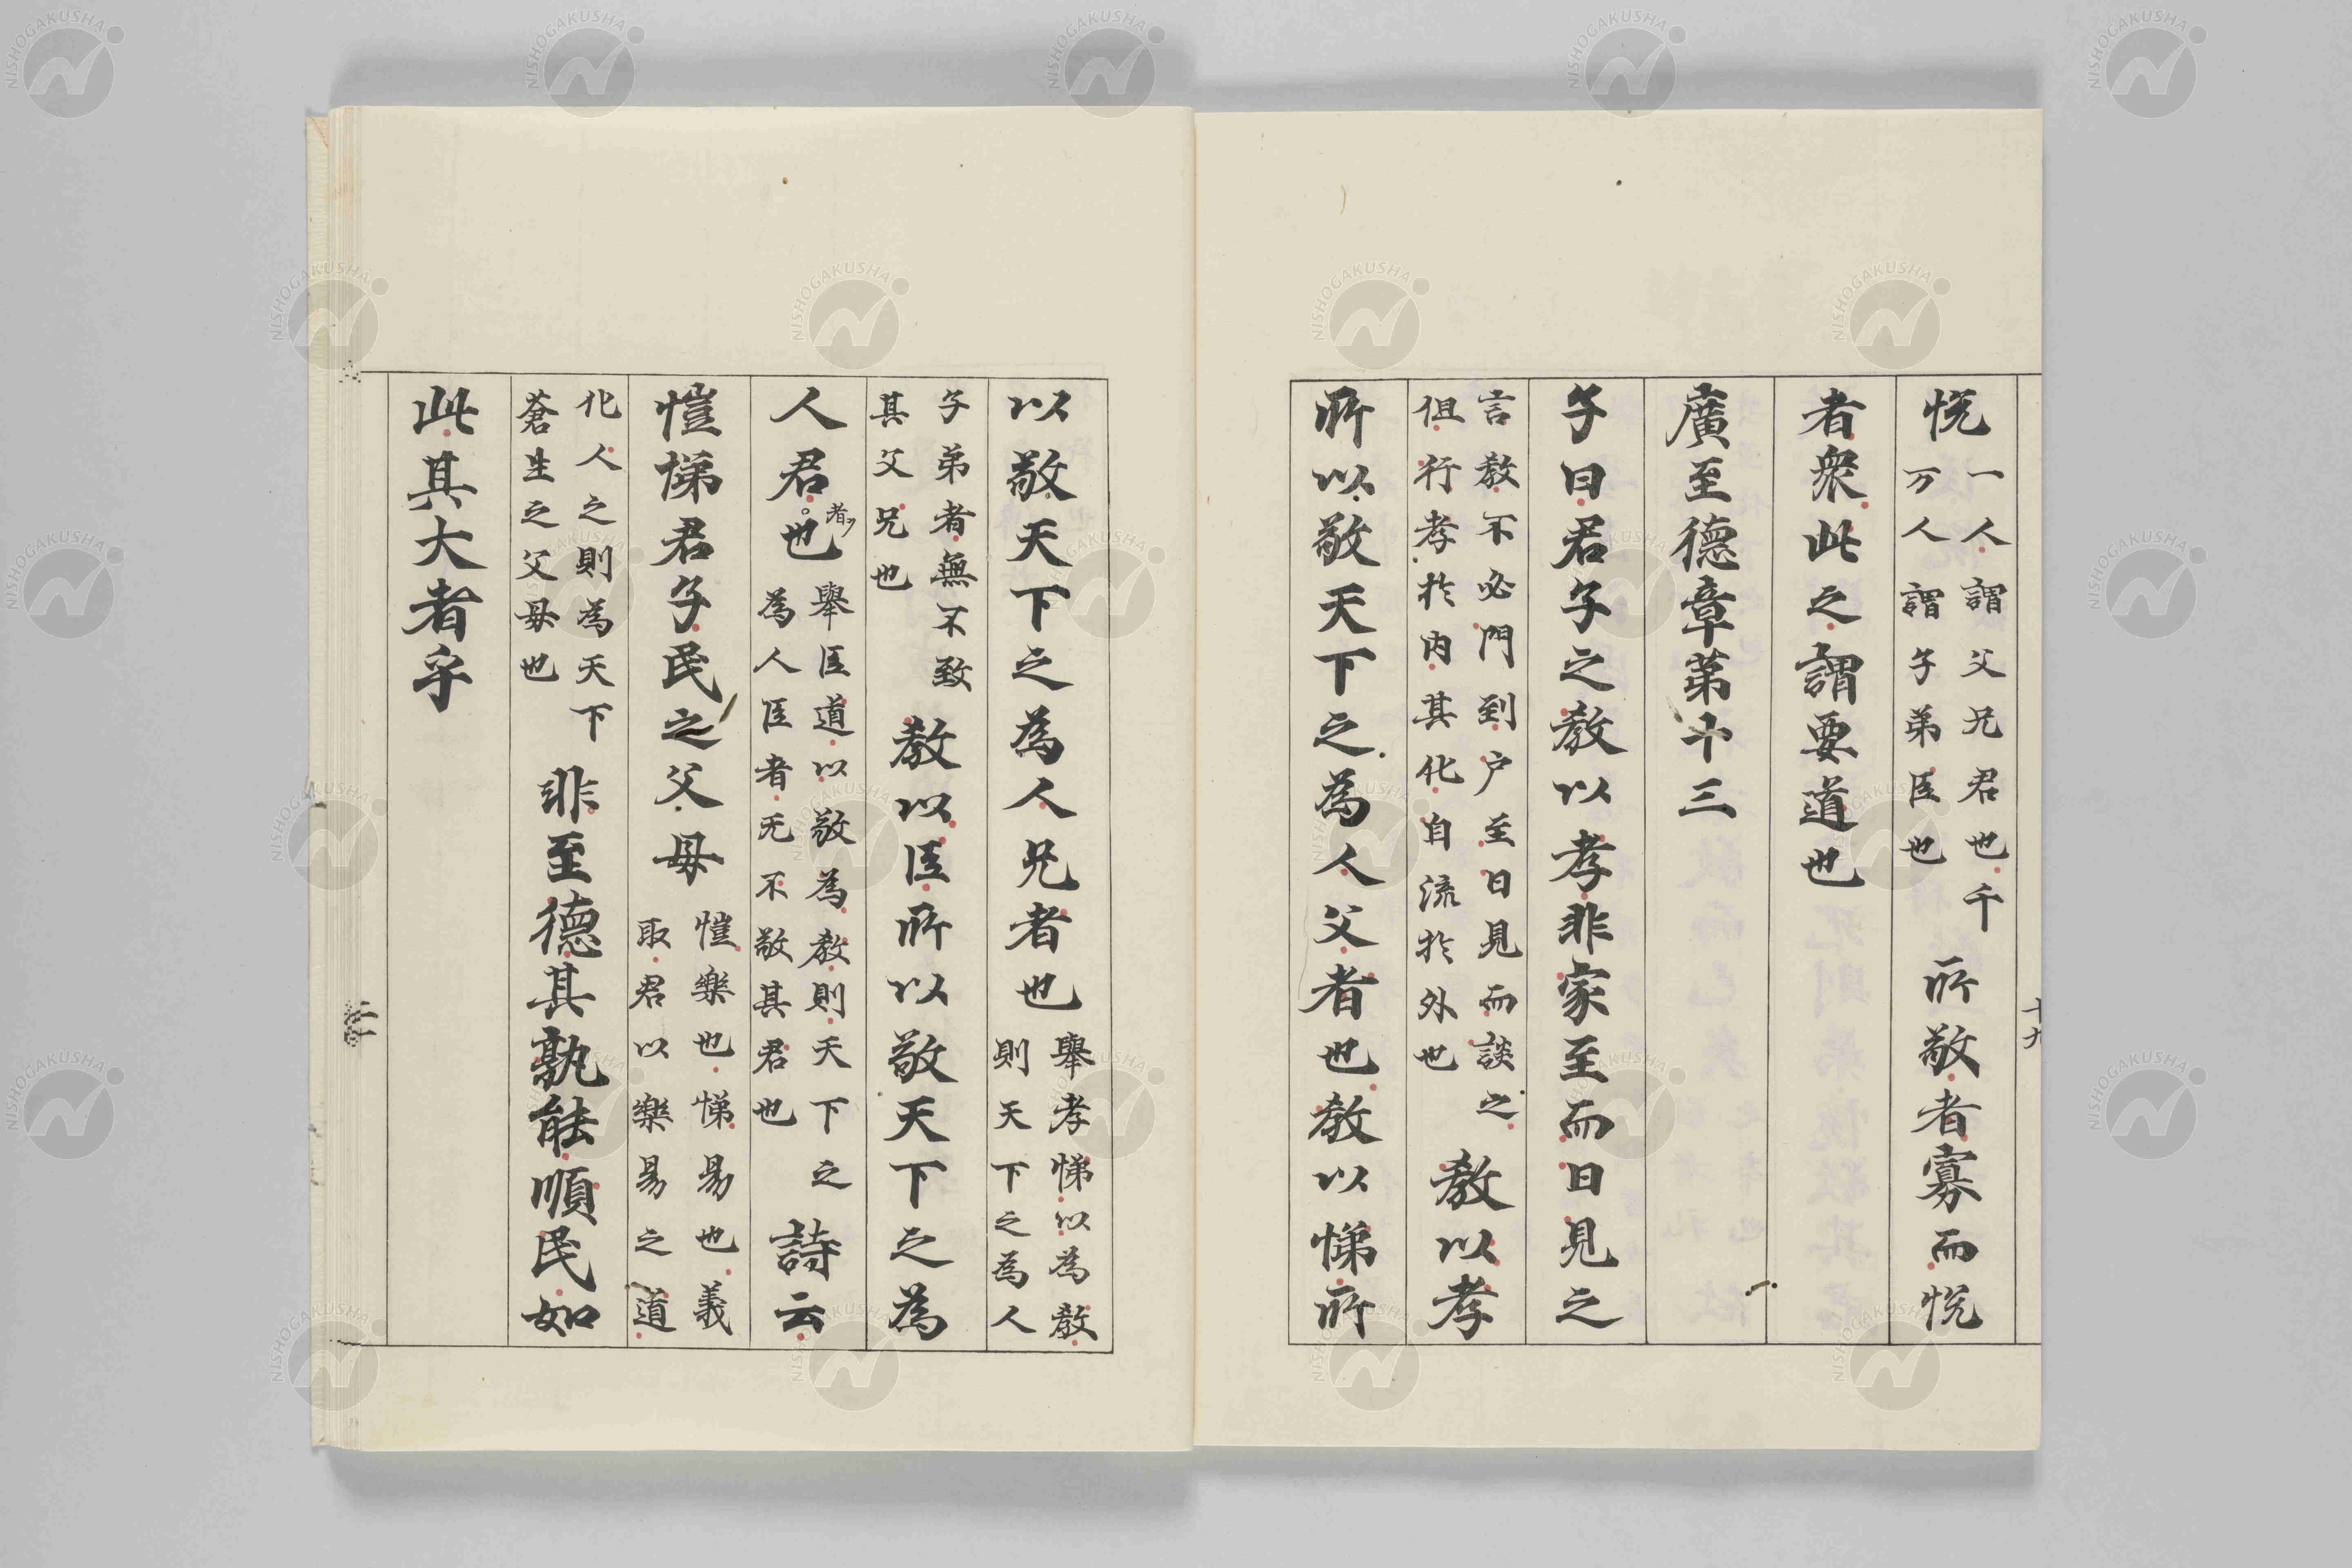 悦一人謂父兄君也千
万人謂子弟臣也所敬者寡而悦
者衆此之謂要道也
廣至德章第十三
子曰君子之教以孝非家至而日見之
言教不必門到户至日見而談之
但行孝於内其化自流於外也教以孝
所以敬天下之為人父者也教以悌所
十九
以敬天下之為人兄者也舉孝悌以為教
則天下之為人
子弟者無不致
其父兄也教以臣所以敬天下之為
人君也舉臣道以敬為教則天下之
者
為人臣者无不敬其君也詩云
愷悌君子民之父母愷樂也悌易也義
取君以樂易之道
化人之則為天下
蒼生之父母也非至德其孰能順民如
此其大者乎
NISHOGAKUSHA